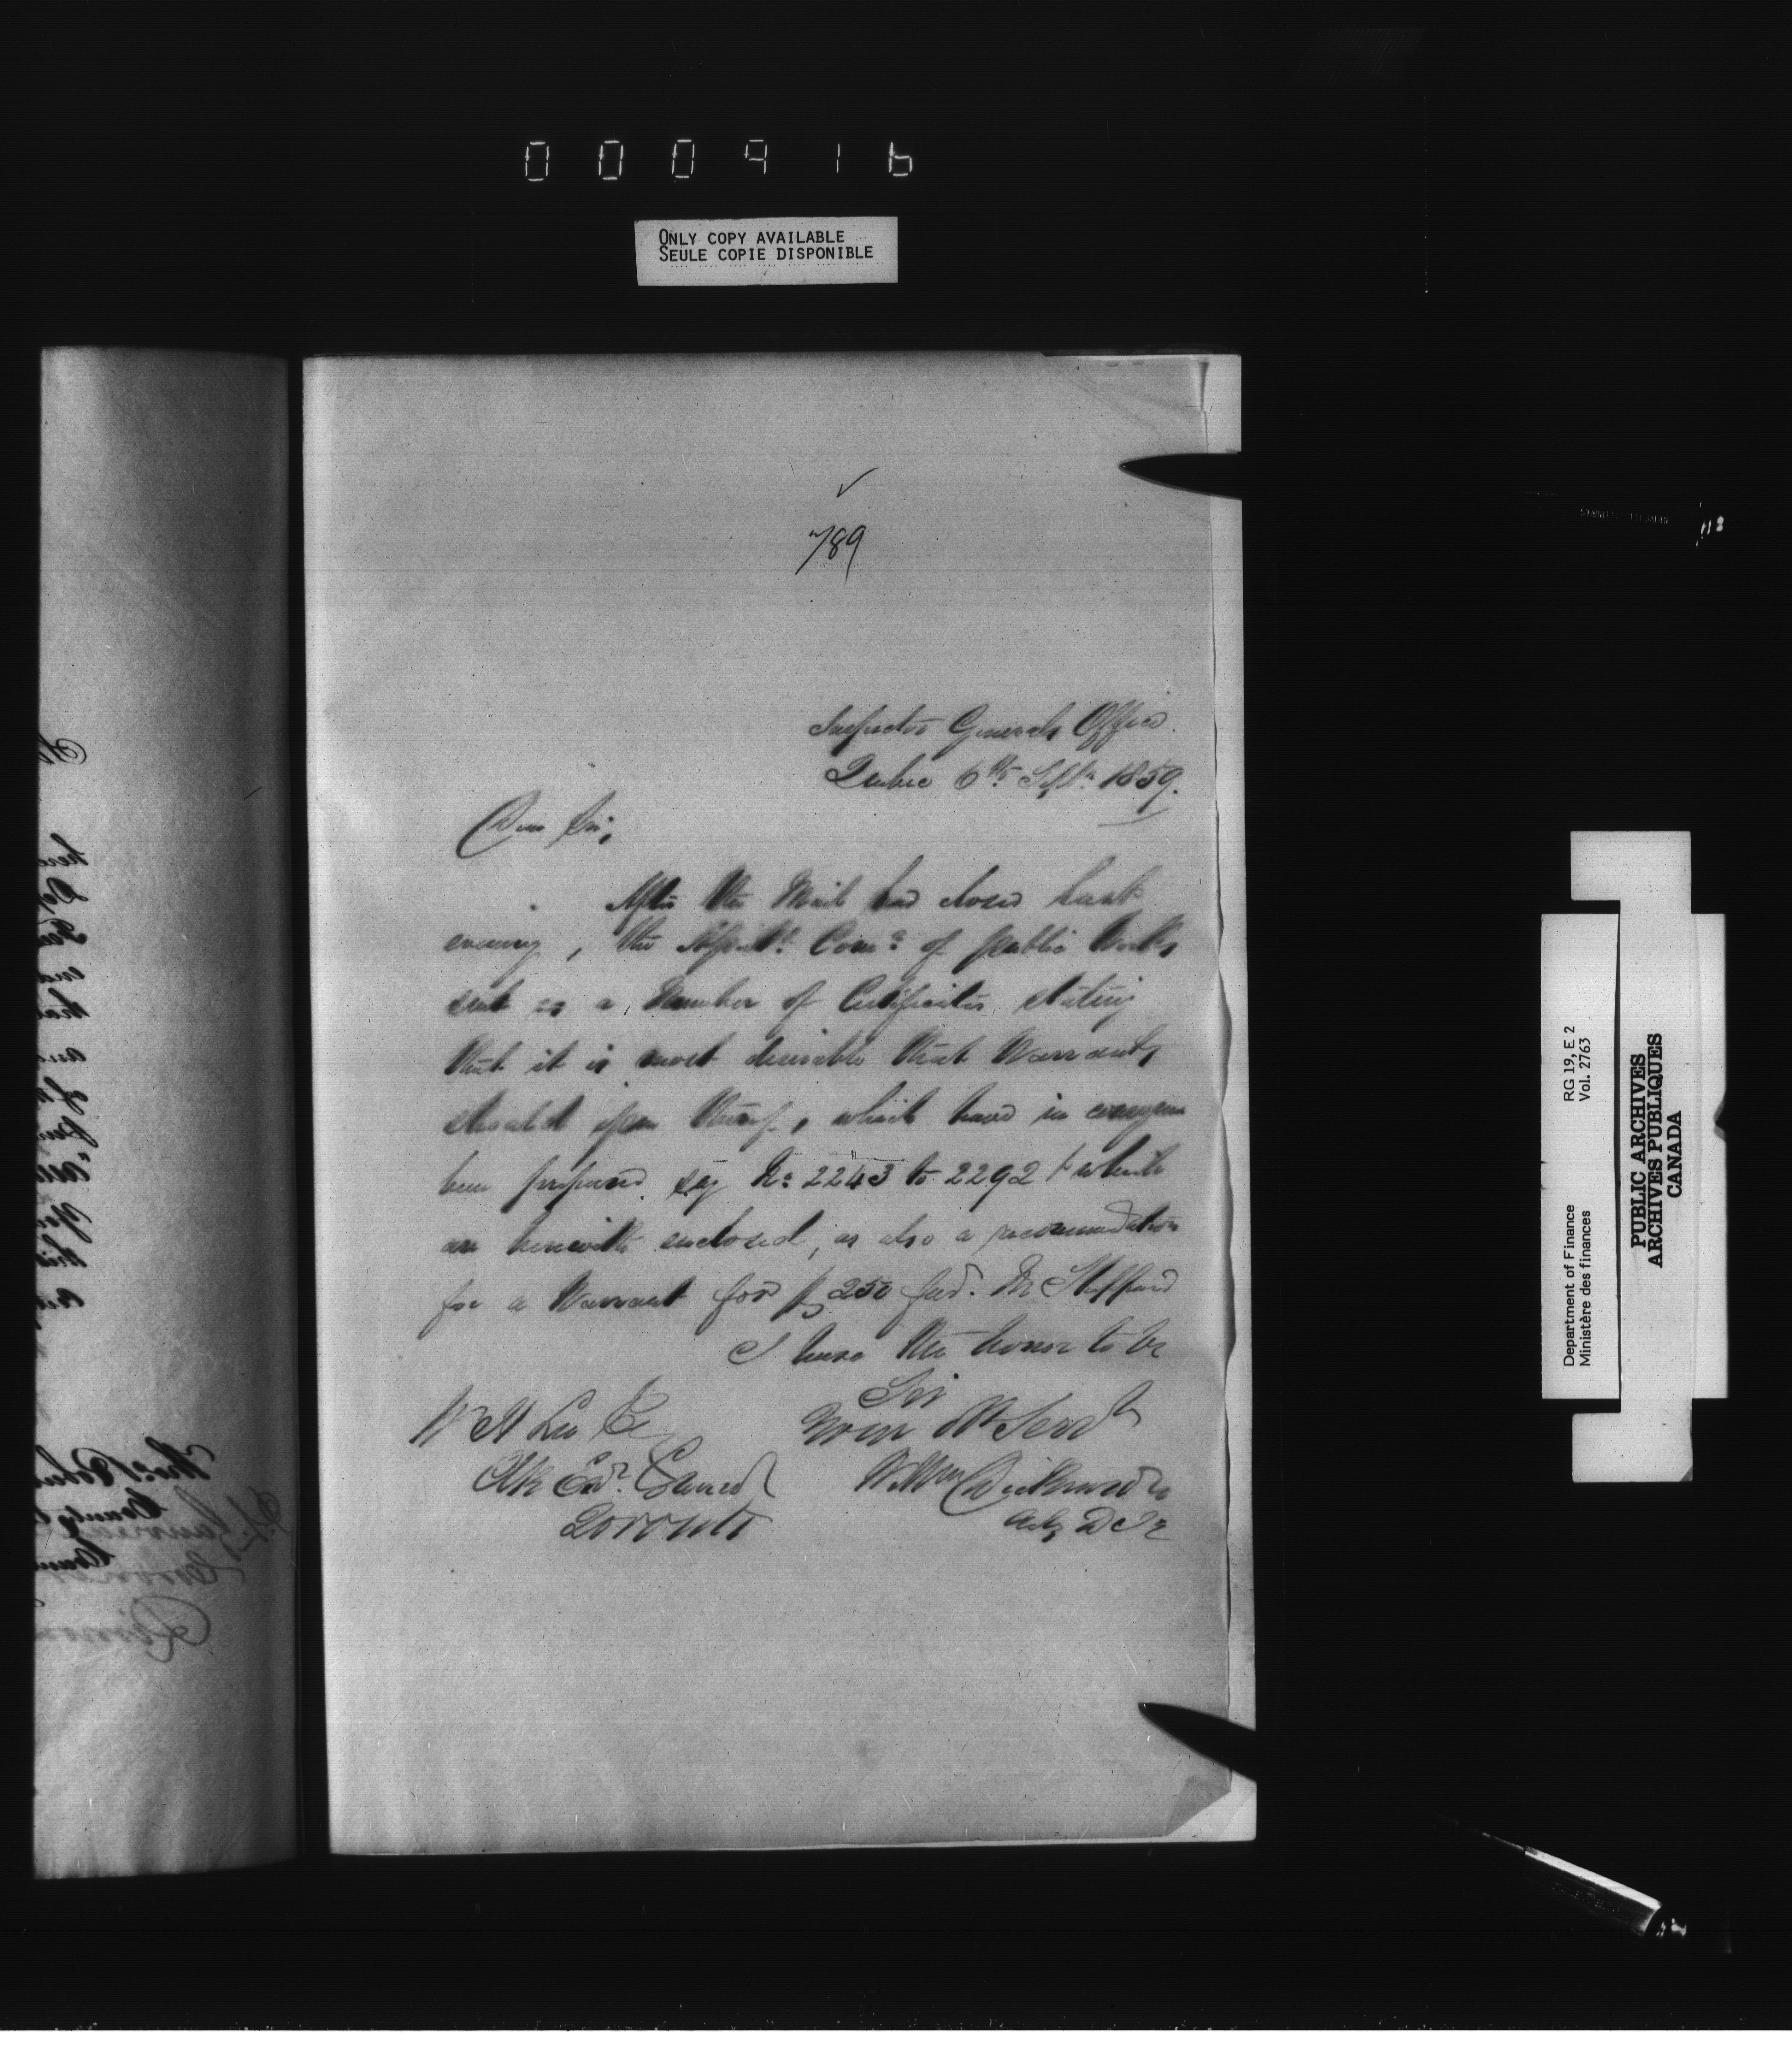 000916
ONLY COPY AVAILABLE
SEULE COPIE DISPONIBLE
789
Inspector Generals Office.
Quebec 6th Sept. 1859.
Dear Sir,
After the Mail had closed last
evening, the Assist. Comr. of public Works
sent us a Number of Certificates, stating
that it is most desirable that Warrants
should issue thereof, which have in consequence
been prepared, say No. 2243 to 2292 & which
are herewith enclosed, as also a recommendation
for a Warrant for $ 250 fav. Mr Stafford
I have the honor to be
Sir
Your Ob Servt
Wm Dickinson
Actg D I G
W H Lee Esq
Clk Ex. Council
Toronto
RG 19, E 2
Vol. 2763
Department of Finance
Ministère des finances
PUBLIC ARCHIVES
ARCHIVES PUBLIQUES
CANADA